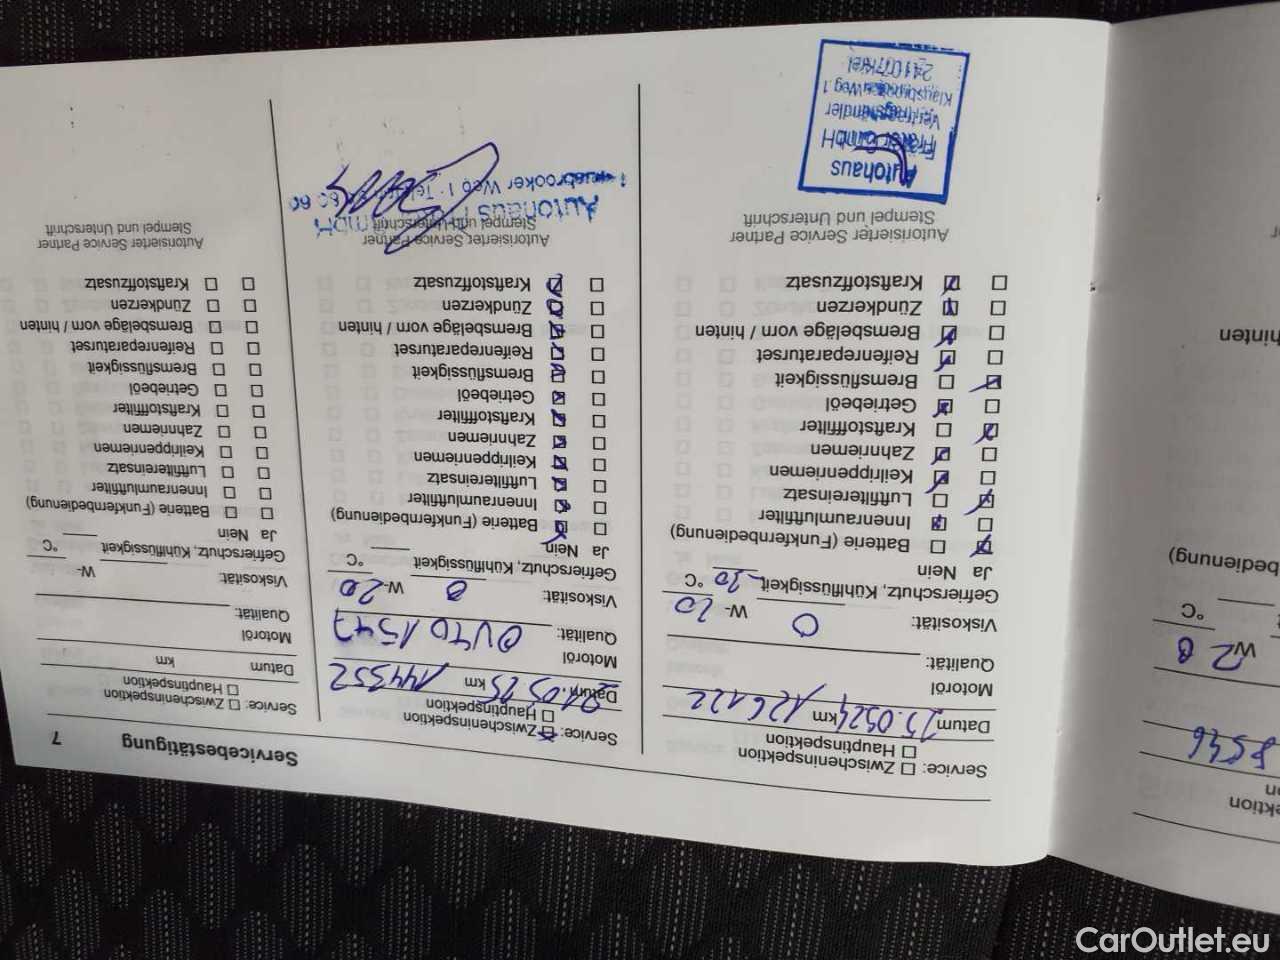 Servicebestätigung 7
Service: Zwischeninspektion
Hauptinspektion
Datum 23.0524 km 126122
Motoröl
Qualität:
Viskosität: 0 W- 20
Gefrierschutz, Kühlflüssigkeit -30 °C
Ja Nein
Batterie (Funkfernbedienung)
Innenraumluftfilter
Luftfiltereinsatz
Keilrippenriemen
Zahnriemen
Kraftstofffilter
Getriebeöl
Bremsflüssigkeit
Reifenreparaturset
Bremsbeläge vorn / hinten
Zündkerzen
Kraftstoffzusatz
Autorisierter Service Partner
Stempel und Unterschrift
Autohaus
GmbH
Vertragshändler
Klausbrooker Weg 1
24107 Kiel
Service: Zwischeninspektion
Hauptinspektion
Datum 21.05.25 km 144352
Motoröl
Qualität: OV40 1547
Viskosität: 0 W- 20
Gefrierschutz, Kühlflüssigkeit °C
Ja Nein
Batterie (Funkfernbedienung)
Innenraumluftfilter
Luftfiltereinsatz
Keilrippenriemen
Zahnriemen
Kraftstofffilter
Getriebeöl
Bremsflüssigkeit
Reifenreparaturset
Bremsbeläge vorn / hinten
Zündkerzen
Kraftstoffzusatz
Autorisierter Service Partner
Stempel und Unterschrift
Autohaus GmbH
brooker Weg 1 · Tel
Service: Zwischeninspektion
Hauptinspektion
Datum km
Motoröl
Qualität:
Viskosität: W-
Gefrierschutz, Kühlflüssigkeit °C
Ja Nein
Batterie (Funkfernbedienung)
Innenraumluftfilter
Luftfiltereinsatz
Keilrippenriemen
Zahnriemen
Kraftstofffilter
Getriebeöl
Bremsflüssigkeit
Reifenreparaturset
Bremsbeläge vorn / hinten
Zündkerzen
Kraftstoffzusatz
Autorisierter Service Partner
Stempel und Unterschrift
ektion
8546
W 20
°C
bedienung)
hinten
CarOutlet.eu